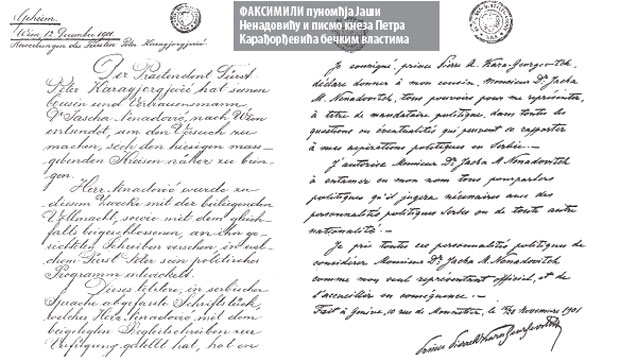 ФАКСИМИЛИ пуномћја Јаши
Ненадовићу и писмо кнеза Петра
Карађорђевића бечким властима
Geheim.
Wien, 12. December 1901
Bewerbungen des Fürsten Peter Karagjorgjević
Der Praetendent Fürst
Peter Karagjorgjević hat seinen
Cousin und Vertrauensmann,
Dr Jascha Nenadović, nach Wien
entsendet, um den Versuch zu
machen, sich den hiesigen mass-
gebenden Kreisen näher zu brin-
gen.
Herr Nenadović wurde zu
diesem Zwecke mit der beiliegenden
Vollmacht, sowie mit dem gleich-
falls beigeschlossenen, an ihn ge-
richteten Schreiben versehen, in wel-
chem Fürst Peter sein politisches
Programm entwickelt.
Dieses letztere, in serbischer
Sprache abgefasste Schriftstück,
welches Herr Nenadović mit dem
beigelegten Begleitschreiben zur
Verfügung gestellt hat, hat er
Je soussigné, prince Pierre A. Kara-Georgevitch,
déclare donner à mon cousin, Monsieur Dr Jacha
M. Nenadovitch, tous pouvoirs pour me représenter,
à titre de mandataire politique, dans toutes les
questions ou éventualités qui peuvent se rapporter
à mes aspirations politiques en Serbie.—
J'autorise Monsieur Dr Jacha M. Nenadovitch
à entamer en mon nom tous pourparlers
politiques qu'il jugera nécessaires avec des
personnalités politiques Serbes ou de toute autre
nationalité.—
Je prie toutes ces personnalités politiques de
considérer Monsieur Dr Jacha M. Nenadovitch
comme mon seul représentant officiel, et de
l'accueillir en conséquence.—
Fait à Genève, rue de Monnetier, le Novembre 1901
Prince Pierre A. Kara Georgevitch